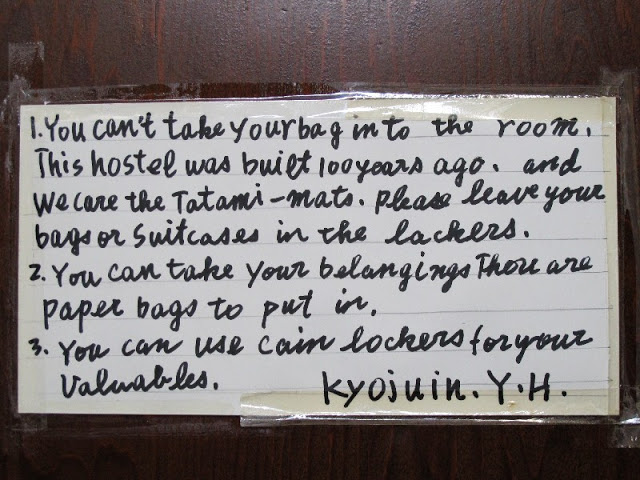 1. You can't take your bag into the room.
This hostel was built 100 years ago. and
we care the Tatami-mats. please leave your
bags or Suitcases in the lackers.
2. You can take your belangings Thore are
paper bags to put in.
3. You can use cain lockers for your
Valuables. Kyojuin. Y.H.